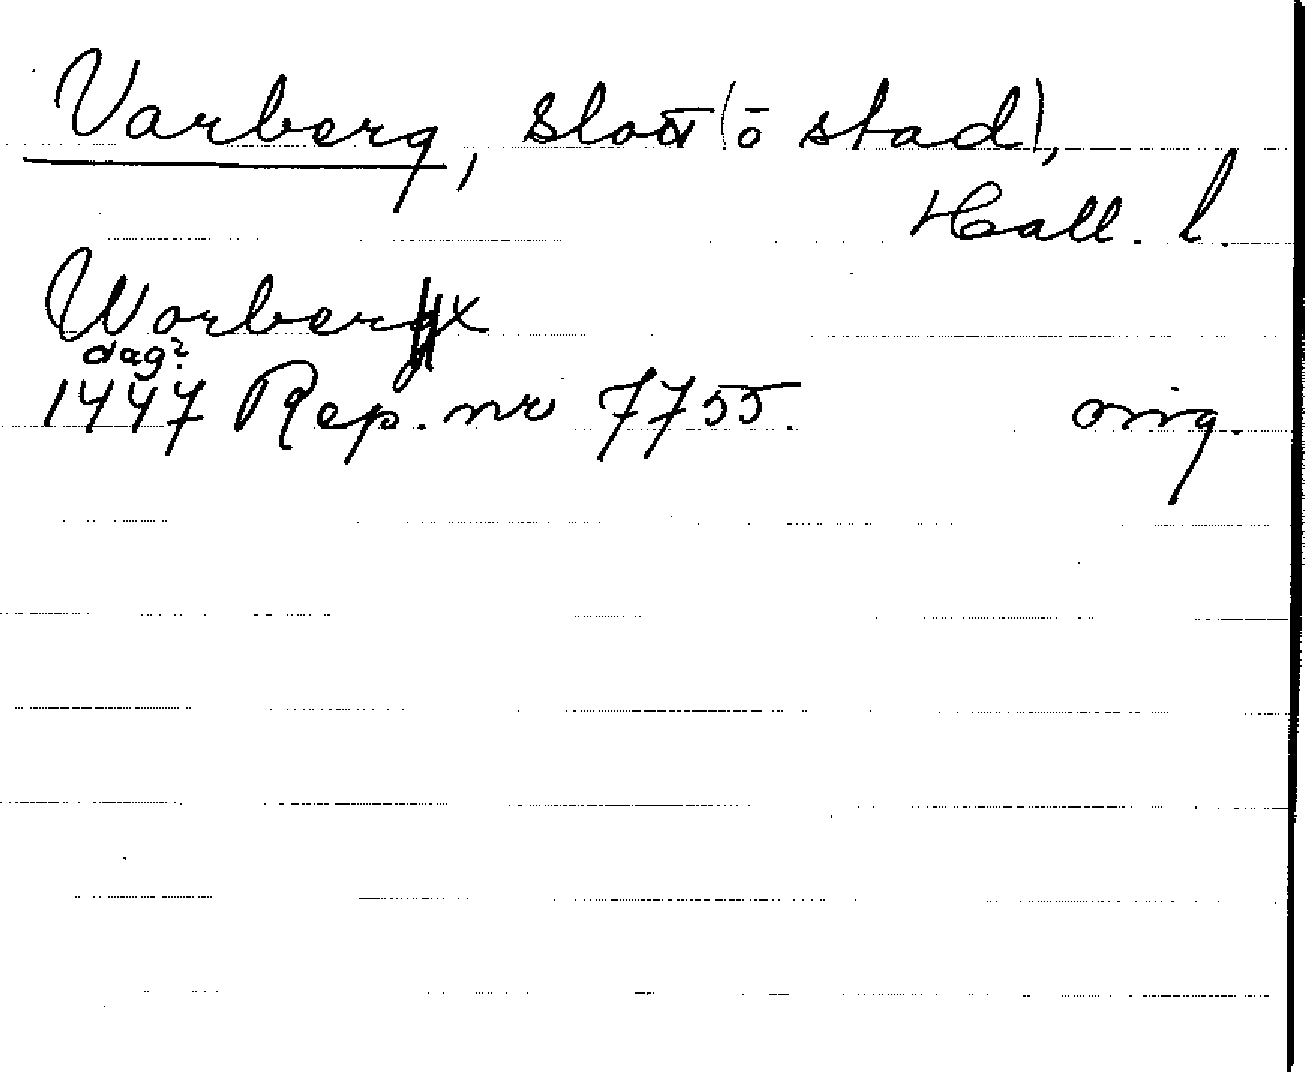 Varberg, slott (ō stad),
Hall. l.
Worberg
dag?
1447 Rep. nr 7755. orig.